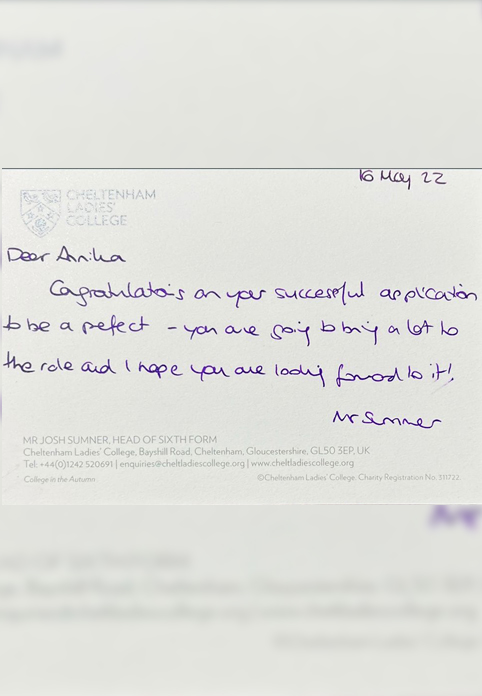 16 May 22
CHELTENHAM
LADIES'
COLLEGE
Dear Annika
Congratulations on your successful application
to be a prefect - you are going to bring a lot to
the role and I hope you are looking forward to it!
Mr Sumner
MR JOSH SUMNER, HEAD OF SIXTH FORM
Cheltenham Ladies' College, Bayshill Road, Cheltenham, Gloucestershire, GL50 3EP, UK
Tel: +44(0)1242 520691 | enquiries@cheltladiescollege.org | www.cheltladiescollege.org
College in the Autumn
©Cheltenham Ladies' College. Charity Registration No. 311722.